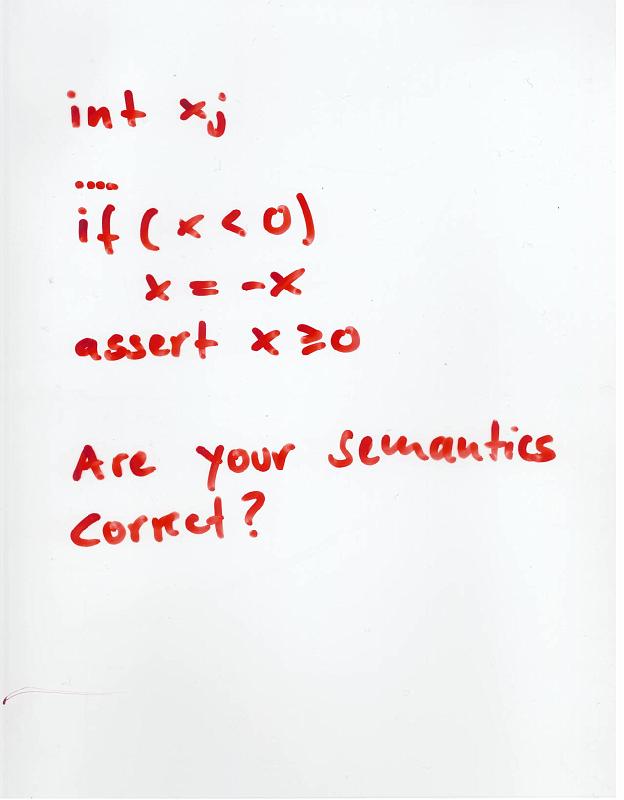 int x;
....
if (x < 0)
x = -x
assert x ≥ 0
Are your semantics
correct?